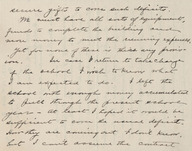 secure gifts to cover such deficits.
We must have all sorts of equipment,
funds to complete the building and
more money to meet the running expenses.
Yet for none of these is there any provi-
sion. In case I return to take charge
of the school, I wish to know what
am expected to do. I left the
school with enough money accumulated
to pull through the present school
year - at least I hoped it would be
sufficient to cover the annual deficit.
they are coming out I don't know,
but I can't assume the contract